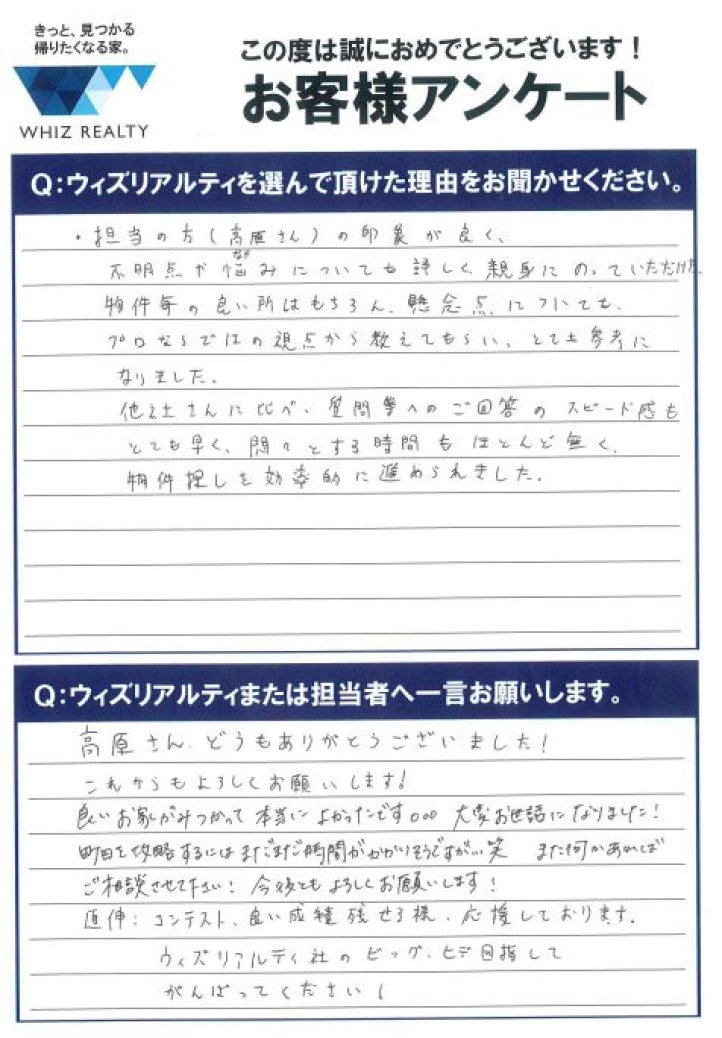 きっと、見つかる
帰りたくなる家。
WHIZ REALTY
この度は誠におめでとうございます！
お客様アンケート
Q：ウィズリアルティを選んで頂けた理由をお聞かせください。
・担当の方（高原さん）の印象が良く、
なや
不明点や悩みについても詳しく、親身にのっていただけた。
物件毎の良い所はもちろん、懸念点についても、
プロならではの視点から教えてもらい、とても参考に
なりました。
他社さんに比べ、質問等へのご回答のスピード感も
とても早く、悶々とする時間もほとんど無く、
物件探しを効率的に進められました。
Q：ウィズリアルティまたは担当者へ一言お願いします。
高原さん、どうもありがとうございました！
これからもよろしくお願いします！
良いお家がみつかって本当によかったです○○○ 大変お世話になりました！
町田を攻略するにはまだまだ時間がかかりそうですが…笑 また何かあれば
ご相談させて下さい！ 今後ともよろしくお願いします！
追伸：コンテスト、良い成績残せる様、応援しております。
ウィズリアルティ社のビッグ・ヒデ目指して
がんばってください！